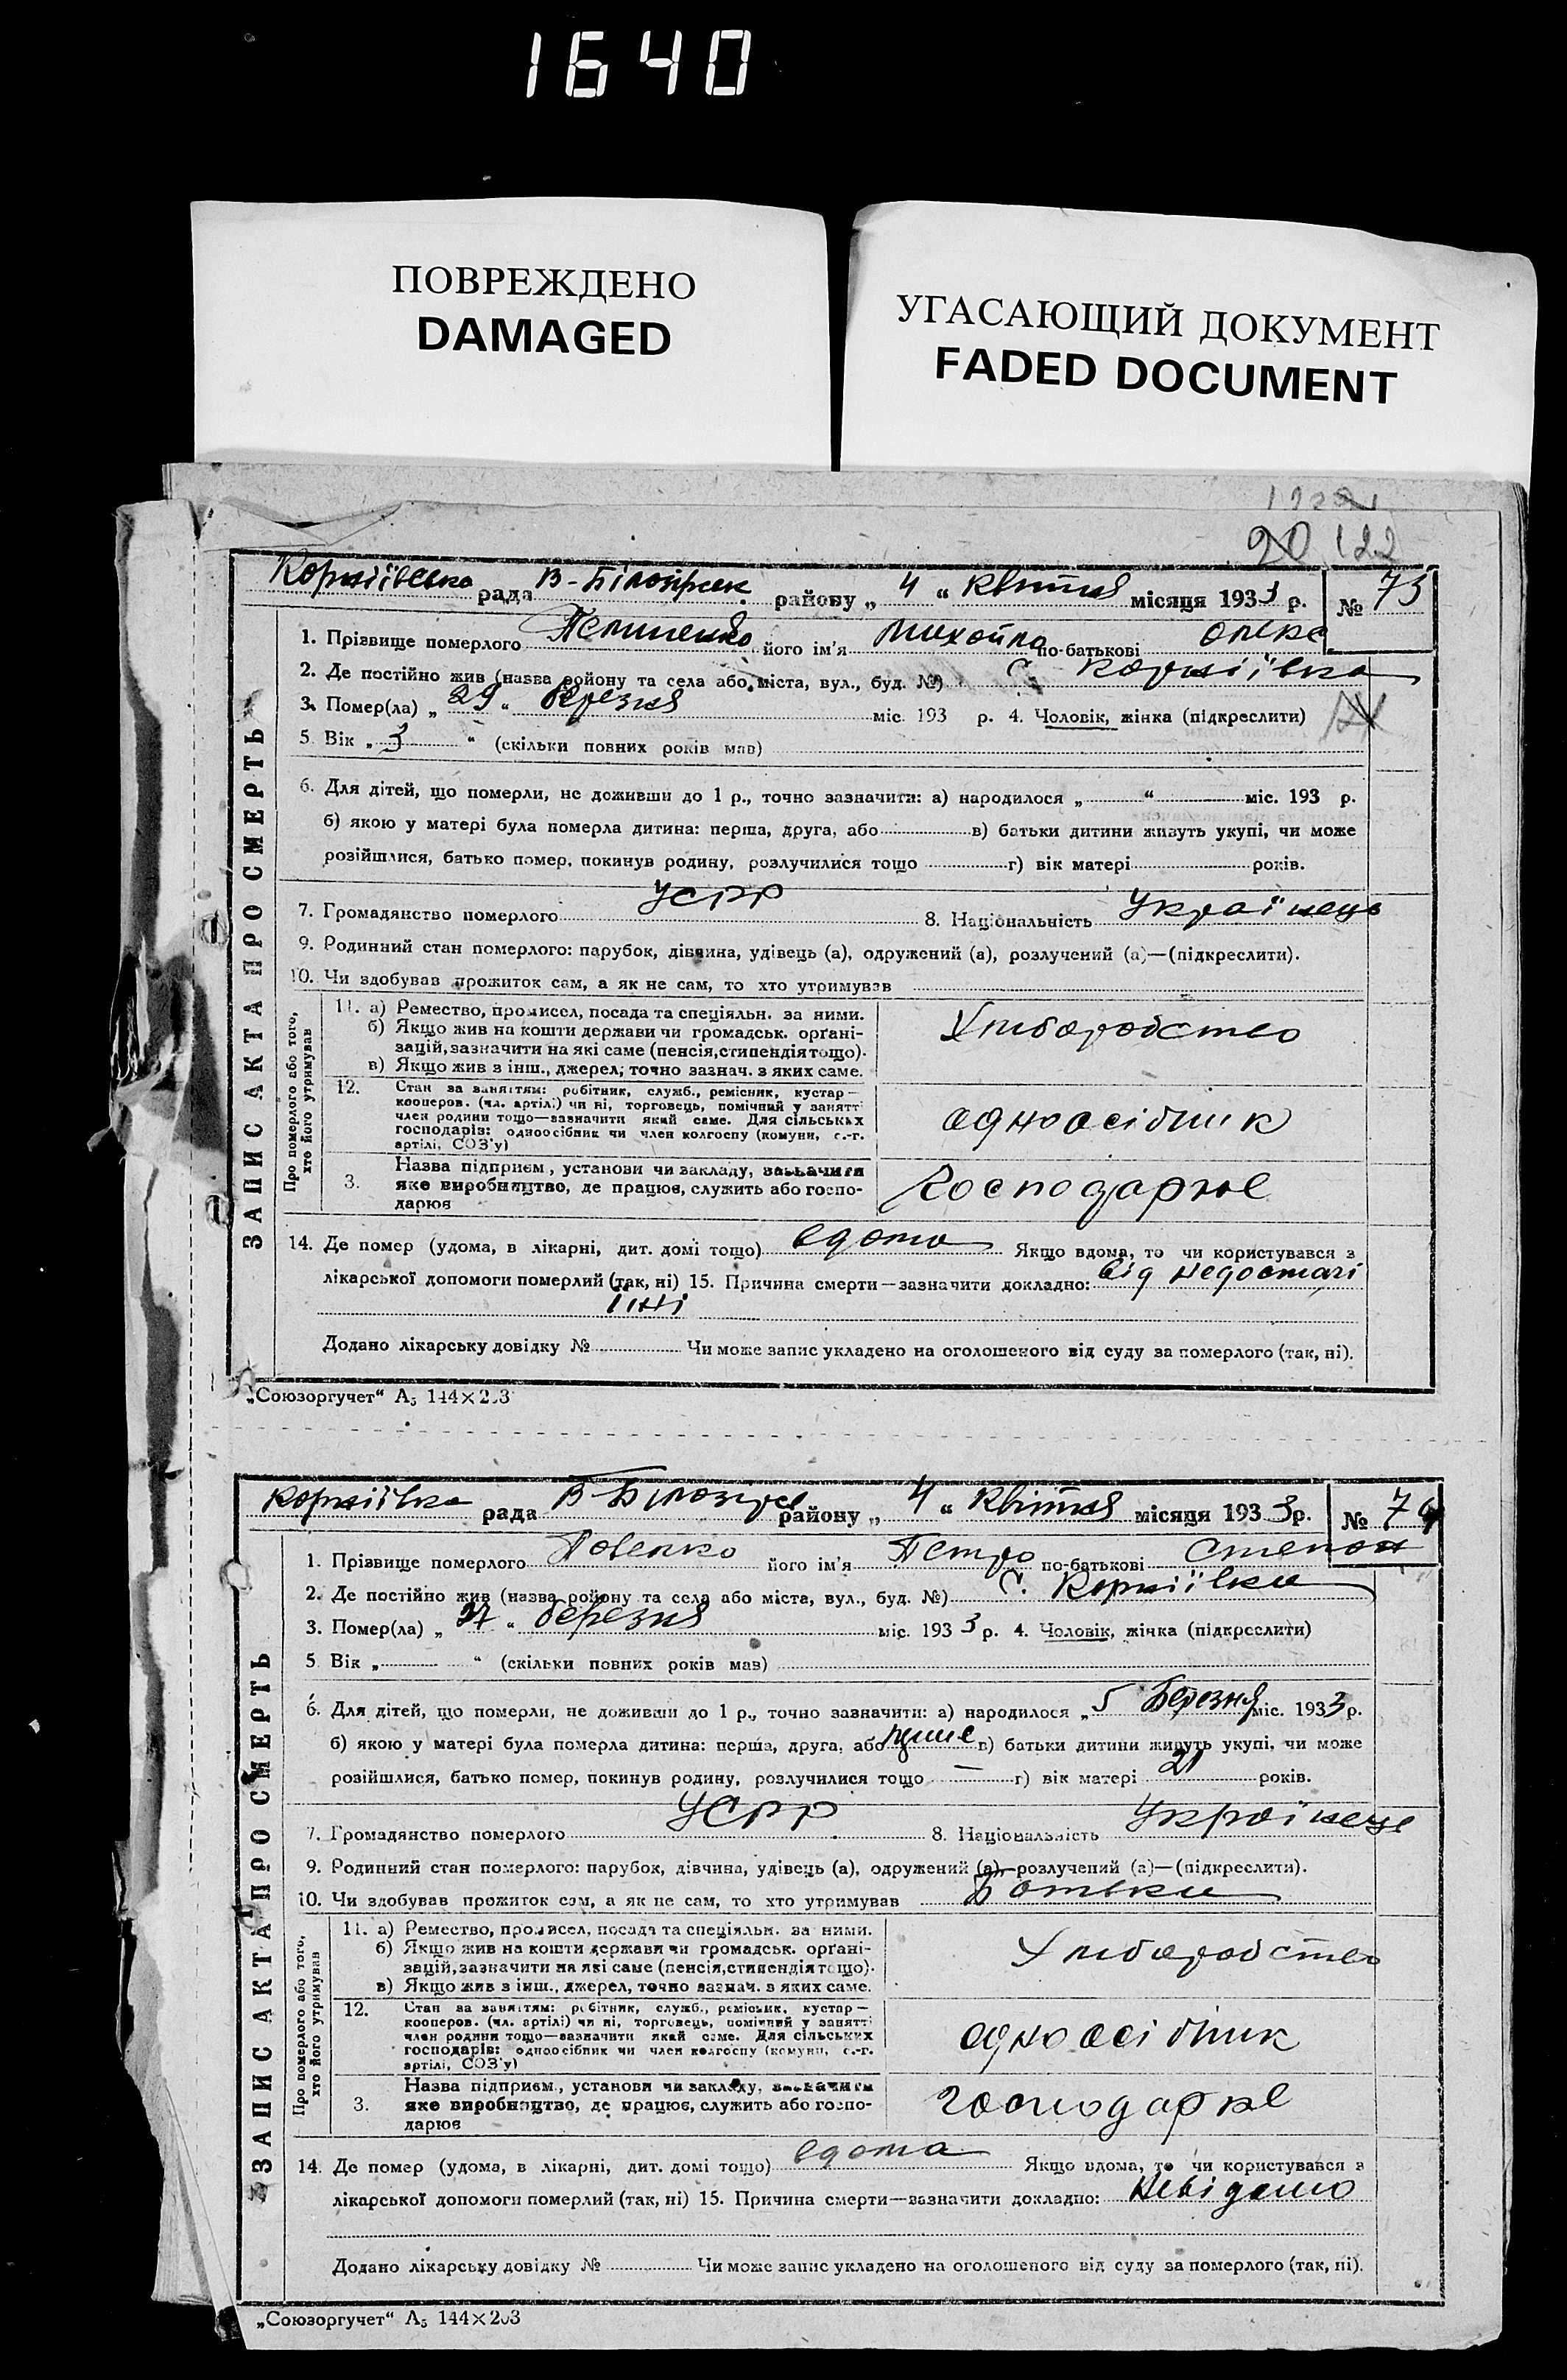 1640
ПОВРЕЖДЕНО
DAMAGED
УГАСАЮЩИЙ ДОКУМЕНТ
FADED DOCUMENT
20 122
ЗАПИС АКТА ПРО СМЕРТЬ
Корніївська рада В-Білозірськ. району „ 4 “ Квітня місяця 1933 р. № 73
1. Прізвище померлого його ім'я Михайло по-батькові Олекс.
2. Де постійно жив (назва району та села або міста, вул., буд. №) С. Корніївка
3. Помер(ла) „ 29 “ березня міс. 193 р. 4. Чоловік, жінка (підкреслити)
5. Вік „ 3 “ (скільки повних років мав)
6. Для дітей, що померли, не доживши до 1 р., точно зазначити: а) народилося „ “ міс. 193 р.
б) якою у матері була померла дитина: перша, друга, або в) батьки дитини живуть укупі, чи може
розійшлися, батько помер, покинув родину, розлучилися тощо г) вік матері років.
7. Громадянство померлого УСРР 8. Національність Українець
9. Родинний стан померлого: парубок, дівчина, удівець (а), одружений (а), розлучений (а)—(підкреслити).
10. Чи здобував прожиток сам, а як не сам, то хто утримував
Про померлого або того, хто його утримував
11. а) Ремество, промисел, посада та спеціяльн. за ними.
б) Якщо жив на кошти держави чи громадськ. орґані-
зацій, зазначити на які саме (пенсія, стипендія тощо).
в) Якщо жив з інш., джерел, точно зазнач. з яких саме.
Хліборобство
12. Стан за заняттям: робітник, служб., ремісник, кустар—
кооперов. (чл. артілі) чи ні, торговець, помічний у занятті
член родини тощо—зазначити який саме. Для сільських
господарів: одноосібник чи член колгоспу (комуни, с.-г.
артілі, СОЗ'у)
одноосібник
3. Назва підприєм., установи чи закладу, зазначити
яке виробництво, де працює, служить або госпо-
дарює
Господарює
14. Де помер (удома, в лікарні, дит. домі тощо) вдома Якщо вдома, то чи користувався з
лікарської допомоги померлий (так, ні) 15. Причина смерти—зазначити докладно: від недостачі
їжі
Додано лікарську довідку № Чи може запис укладено на оголошеного від суду за померлого (так, ні).
„Союзоргучет“ А5 144×203
ЗАПИС АКТА ПРО СМЕРТЬ
Корніївка рада В-Білозірсь району „ 4 “ Квітня місяця 1933 р. № 74
1. Прізвище померлого його ім'я Петро по-батькові Степан
2. Де постійно жив (назва району та села або міста, вул., буд. №) С. Корніївка
3. Помер(ла) „ 27 “ березня міс. 1933 р. 4. Чоловік, жінка (підкреслити)
5. Вік „ “ (скільки повних років мав)
6. Для дітей, що померли, не доживши до 1 р., точно зазначити: а) народилося „ 5 Березня міс. 1933 р.
б) якою у матері була померла дитина: перша, друга, або в) батьки дитини живуть укупі, чи може
розійшлися, батько помер, покинув родину, розлучилися тощо — г) вік матері 21 років.
7. Громадянство померлого УСРР 8. Національність Українець
9. Родинний стан померлого: парубок, дівчина, удівець (а), одружений (а), розлучений (а)—(підкреслити).
10. Чи здобував прожиток сам, а як не сам, то хто утримував Батьки
Про померлого або того, хто його утримував
11. а) Ремество, промисел, посада та спеціяльн. за ними.
б) Якщо жив на кошти держави чи громадськ. орґані-
зацій, зазначити на які саме (пенсія, стипендія тощо).
в) Якщо жив з інш., джерел, точно зазнач. з яких саме.
Хліборобство
12. Стан за заняттям: робітник, служб., ремісник, кустар—
кооперов. (чл. артілі) чи ні, торговець, помічний у занятті
член родини тощо—зазначити який саме. Для сільських
господарів: одноосібник чи член колгоспу (комуни, с.-г.
артілі, СОЗ'у)
одноосібник
3. Назва підприєм., установи чи закладу, зазначити
яке виробництво, де працює, служить або госпо-
дарює
господарює
14. Де помер (удома, в лікарні, дит. домі тощо) вдома Якщо вдома, то чи користувався з
лікарської допомоги померлий (так, ні) 15. Причина смерти—зазначити докладно: Невідомо
Додано лікарську довідку № Чи може запис укладено на оголошеного від суду за померлого (так, ні).
„Союзоргучет“ А5 144×203